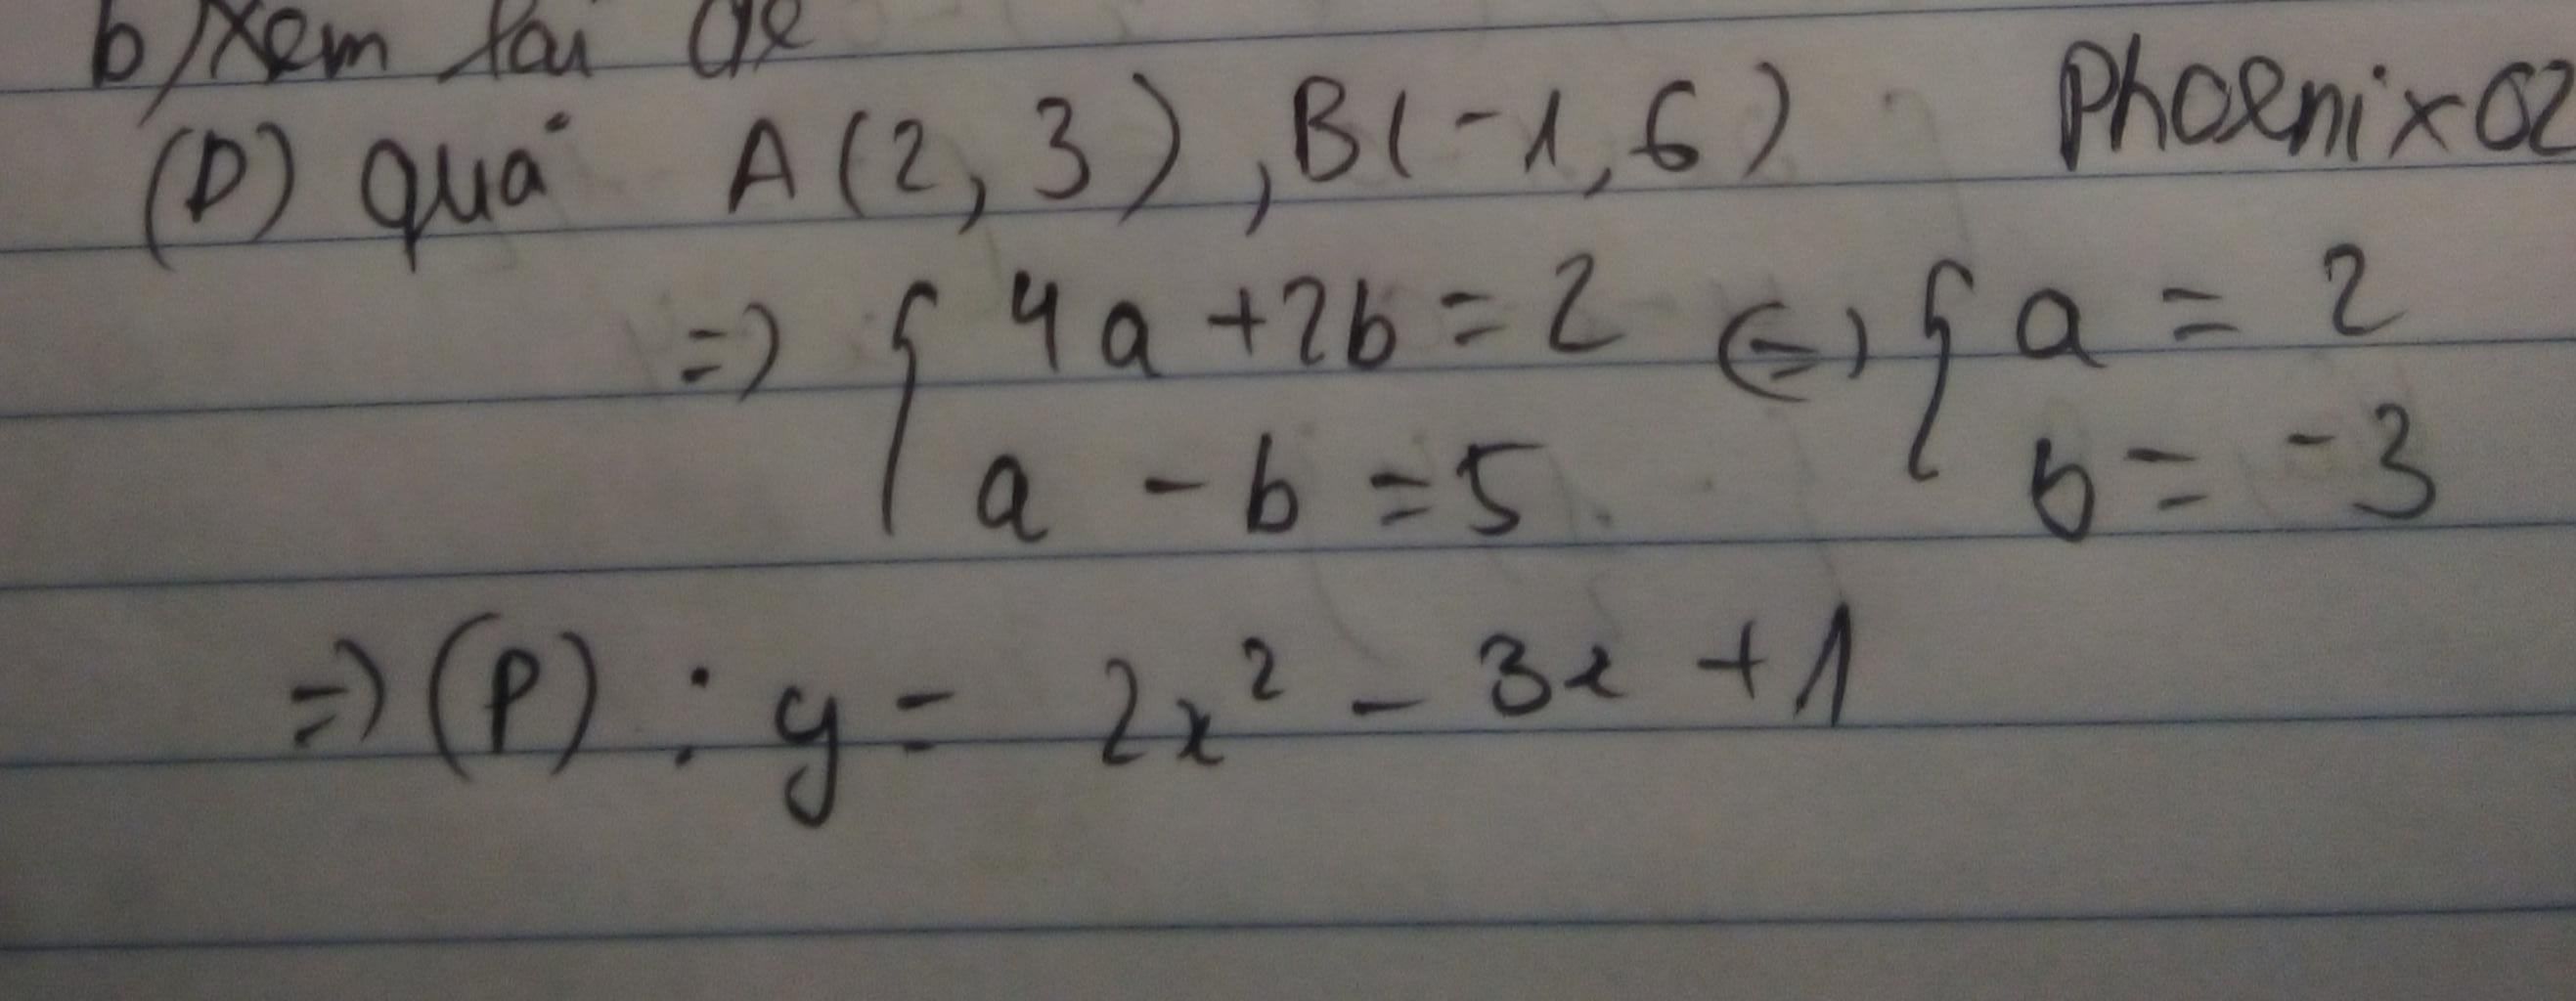 b) Xem lại đề
(P) qua A(2, 3), B(-1, 6) Phoenix02
=> { 4a + 2b = 2 <=> { a = 2
a - b = 5 b = -3
=> (P) : y = 2x² - 3x + 1